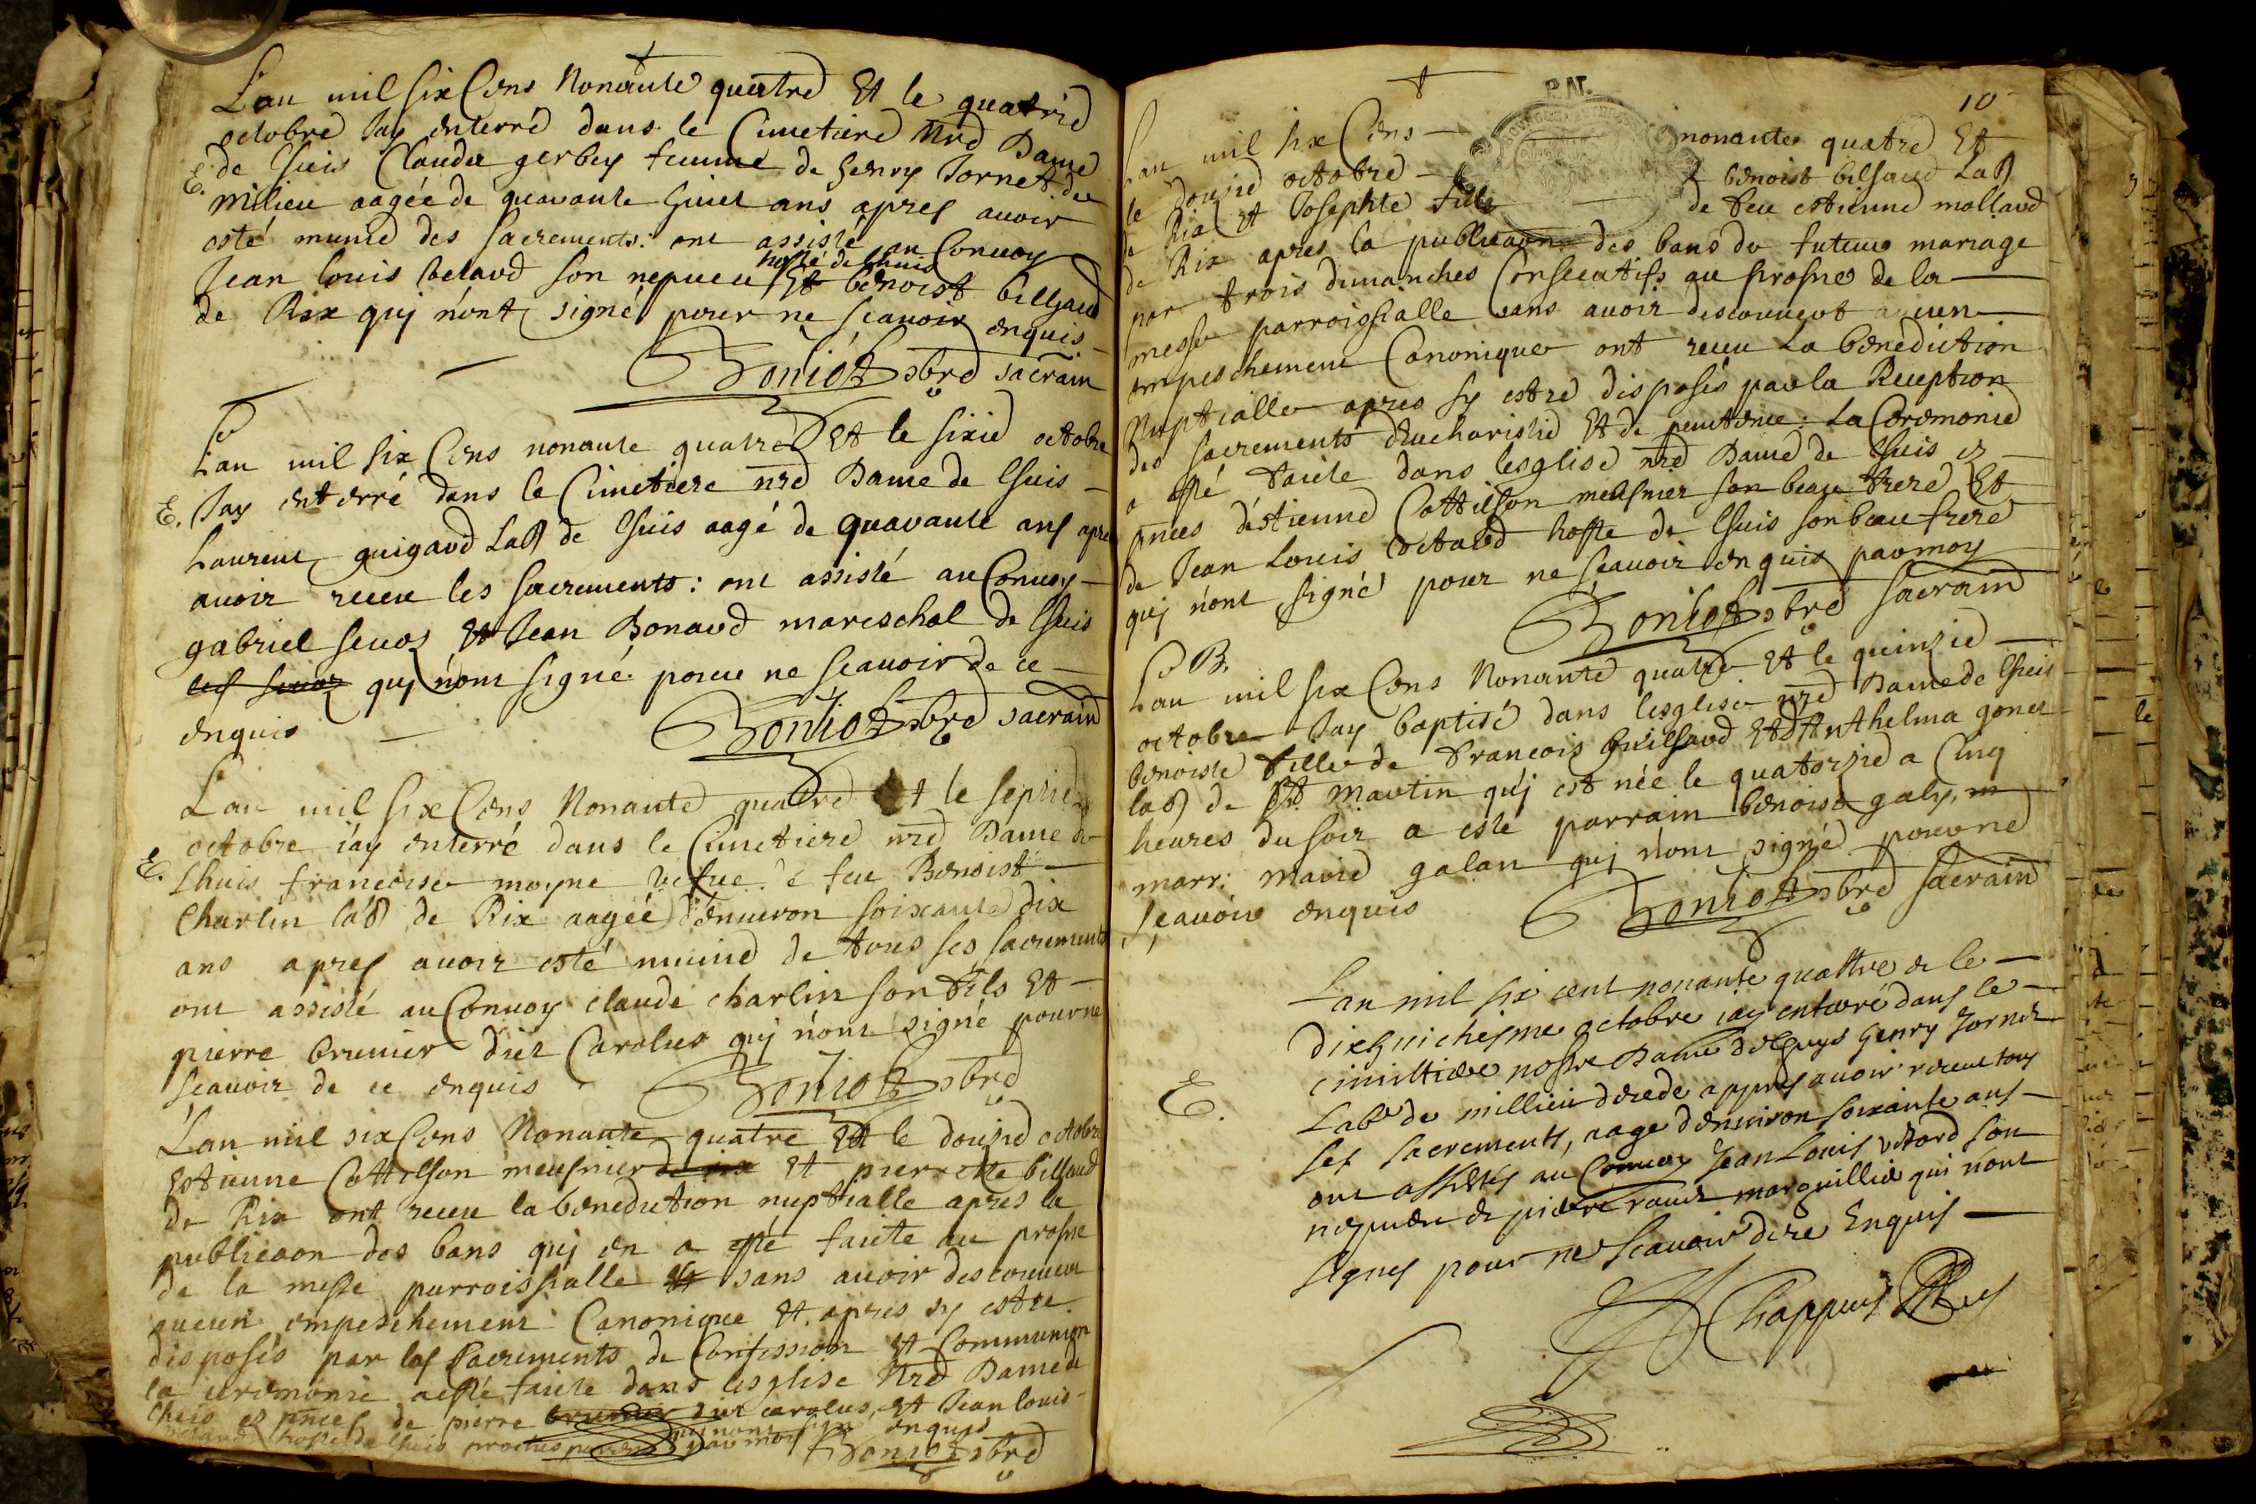 L'an mil six Cens Nonante quatre Et le quatrie
octobre Jay enterré dans le Cimetiere Nre Dame
E. de Lhuis Claudu gerbey femme de henry Jornet de
milieu aagée de quarante huict ans apres avoir
esté munie des sacrements: ont assisté au Convoy
hoste de Lhuis
Jean louis Vetard son nepueu Et benoist billiard
de Rix quj n'ont signé pour ne scavoir enquis
Boniot pbre sacrain
L'an mil six Cens nonante quatre Et le sixie octobre
E. Jay enterré dans le Cimetiere nre Dame de Lhuis
Laurent guigard Lab de Lhuis aagé de quarante ans apres
avoir receu les sacrements: ont assisté au Convoy
gabriel Et Jean Bonard mareschal de Lhuis
quj n'ont signé pour ne scavoir de ce
enquis Boniot pbre sacrain
L'an mil six Cens Nonante quatre Et le septie
octobre j'ay enterré dans le Cimetiere nre Dame de
E. Lhuis francoise moyne vefue de feu Benoist
Charlin lab de Rix aagée d'enuiron soixante dix
ans apres avoir esté munie de tous ses sacrements
ont assisté au Convoy claude charlin son fils Et
pierre brunier dict Carolus quj n'ont signé pour ne
scavoir de ce enquis Boniot pbre
L'an mil six Cens Nonante quatre Et le douzie octobre
Estienne Cottilson meusnier Et pierrette billiard
de Rix ont receu la benediction nuptialle apres la
publicaon des bans quj en a esté faicte au prosne
de la messe parroissialle sans avoir descouuert
aucun empeschement Canonique Et apres sy estre
disposés par les Sacrements de Confession Et Communion
la ceremonie a esté faicte dans lesglise Nre Dame de
Lhuis es pnces de pierre brunier dict carolus, Et Jean louis
Vetard hoste de Lhuis proches parens quj n'ont signé enquis
par moy Boniot pbre
P.NT.
10
L'an mil six Cens nonante quatre Et
le douzie octobre benoist billiard Lab
de Rix Et Josephte fille de feu estienne mollard
de Rix apres la publicaon des bans du futur mariage
par trois dimanches Consecutifs au prosne de la
messe parroissialle sans avoir descouuert aucun
empeschement Canonique ont receu la benediction
Nuptialle apres sy estre disposés par la Reception
des sacrements d'Eucharistie Et de penitence: La Ceremonie
a esté faicte dans lesglise nre Dame de Lhuis es
pnces d'estienne Cottilson meusnier son beau frere Et
de Jean Louis Vetard hoste de Lhuis son beau frere
quj n'ont signé pour ne scavoir enquis par moy
Boniot pbre sacrain
B.
L'an mil six Cens Nonante quatre Et le quinzie
octobre Jay baptisé dans lesglise nre Dame de Lhuis
benoiste fille de francois Et d'Anthelma gonet
lab de St martin quj est née le quatorzie a Cinq
heures du soir a esté parrain benoist galy,
marr: marie galan quj n'ont signé pour ne
scavoir enquis Boniot pbre sacrain
L'an mil six cent nonante quattre & le
dixhuichiesme octobre iay enterré dans le
cimittiere nostre Dame de Lhuys henry Jornet
E. Lab de millieu appres avoir receu tous
ses sacrements, aage d'enuiron soixante ans
ont assistés au Convoy Jean Louis vetard son
nepueu & pierre marguillie qui n'ont
signes pour ne scauoir Enquis
Chappuis